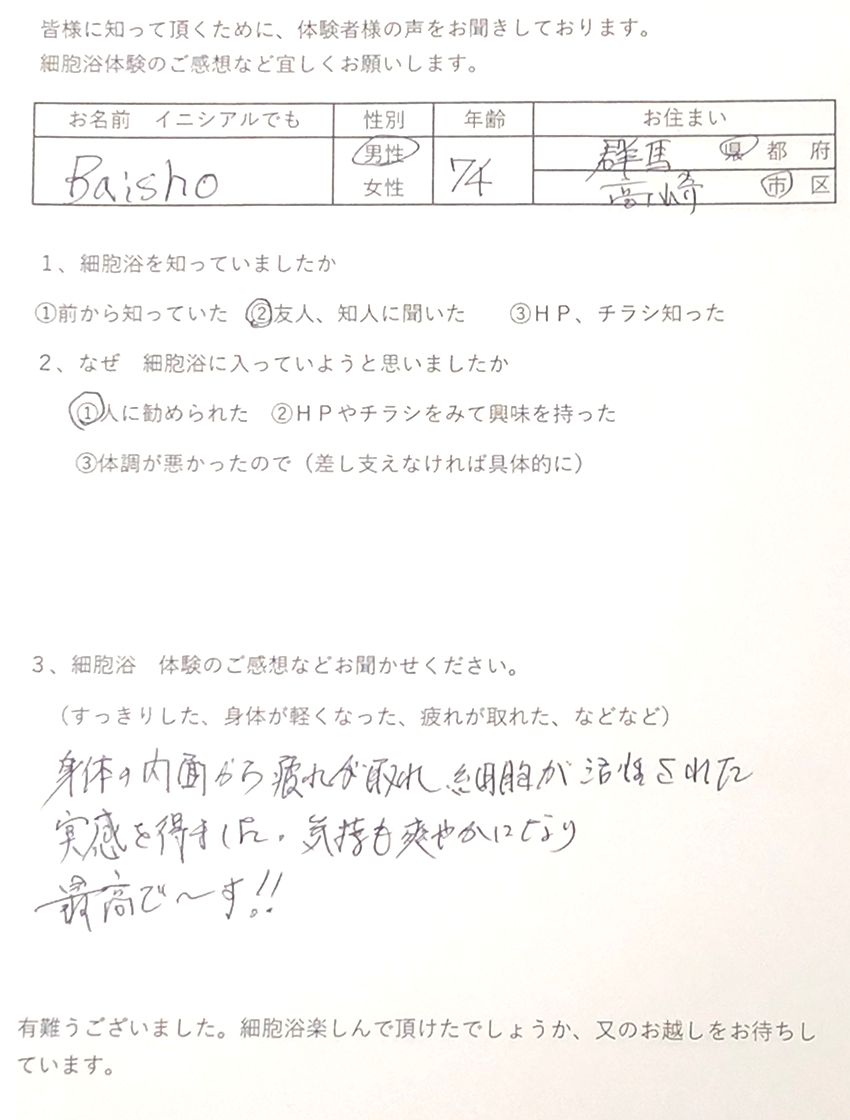 皆様に知って頂くために、体験者様の声をお聞きしております。
細胞浴体験のご感想など宜しくお願いします。
お名前　イニシアルでも　性別　年齢　お住まい
Baisho　男性　女性　74　群馬　県　都　府
高崎　市　区
１、細胞浴を知っていましたか
①前から知っていた　②友人、知人に聞いた　　③ＨＰ、チラシ知った
２、なぜ　細胞浴に入っていようと思いましたか
①人に勧められた　②ＨＰやチラシをみて興味を持った
③体調が悪かったので（差し支えなければ具体的に）
３、細胞浴　体験のご感想などお聞かせください。
（すっきりした、身体が軽くなった、疲れが取れた、などなど）
身体の内面から疲れが取れ 細胞が活性された
実感を得ました。気持も爽やかになり
最高で〜す!!
有難うございました。細胞浴楽しんで頂けたでしょうか、又のお越しをお待ちし
ています。